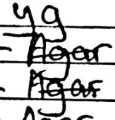 yg
= Agar
= Agar